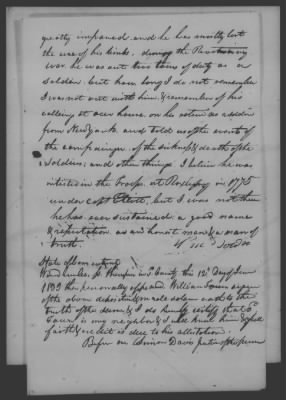 greatly impaired and he has mostly lost
the use of his limbs. during the Revolutionary
war he was out two tours of duty as a
soldier but how long I do not remember
I was not out with him, & remember of his
calling at our house on his return as a soldier
from New york and told us of the events of
the campaign of the sickness & death of the
soldiers; and other things I believe he was
enlisted in the Troops at Roxbury in 1775
under capt Elliott, but I was not there
he has ever sustained a good name
& reputation as an honest man & a man of
truth
State of
County, the 12 Day of June
1833 then personally appeared William
of the above deposition & made solemn oath to the
truth of the same, & I do hereby certify that
is my neighbor & I well know him & full
faith & credit is due to his attestation.
Before me Davis Justice of the peace